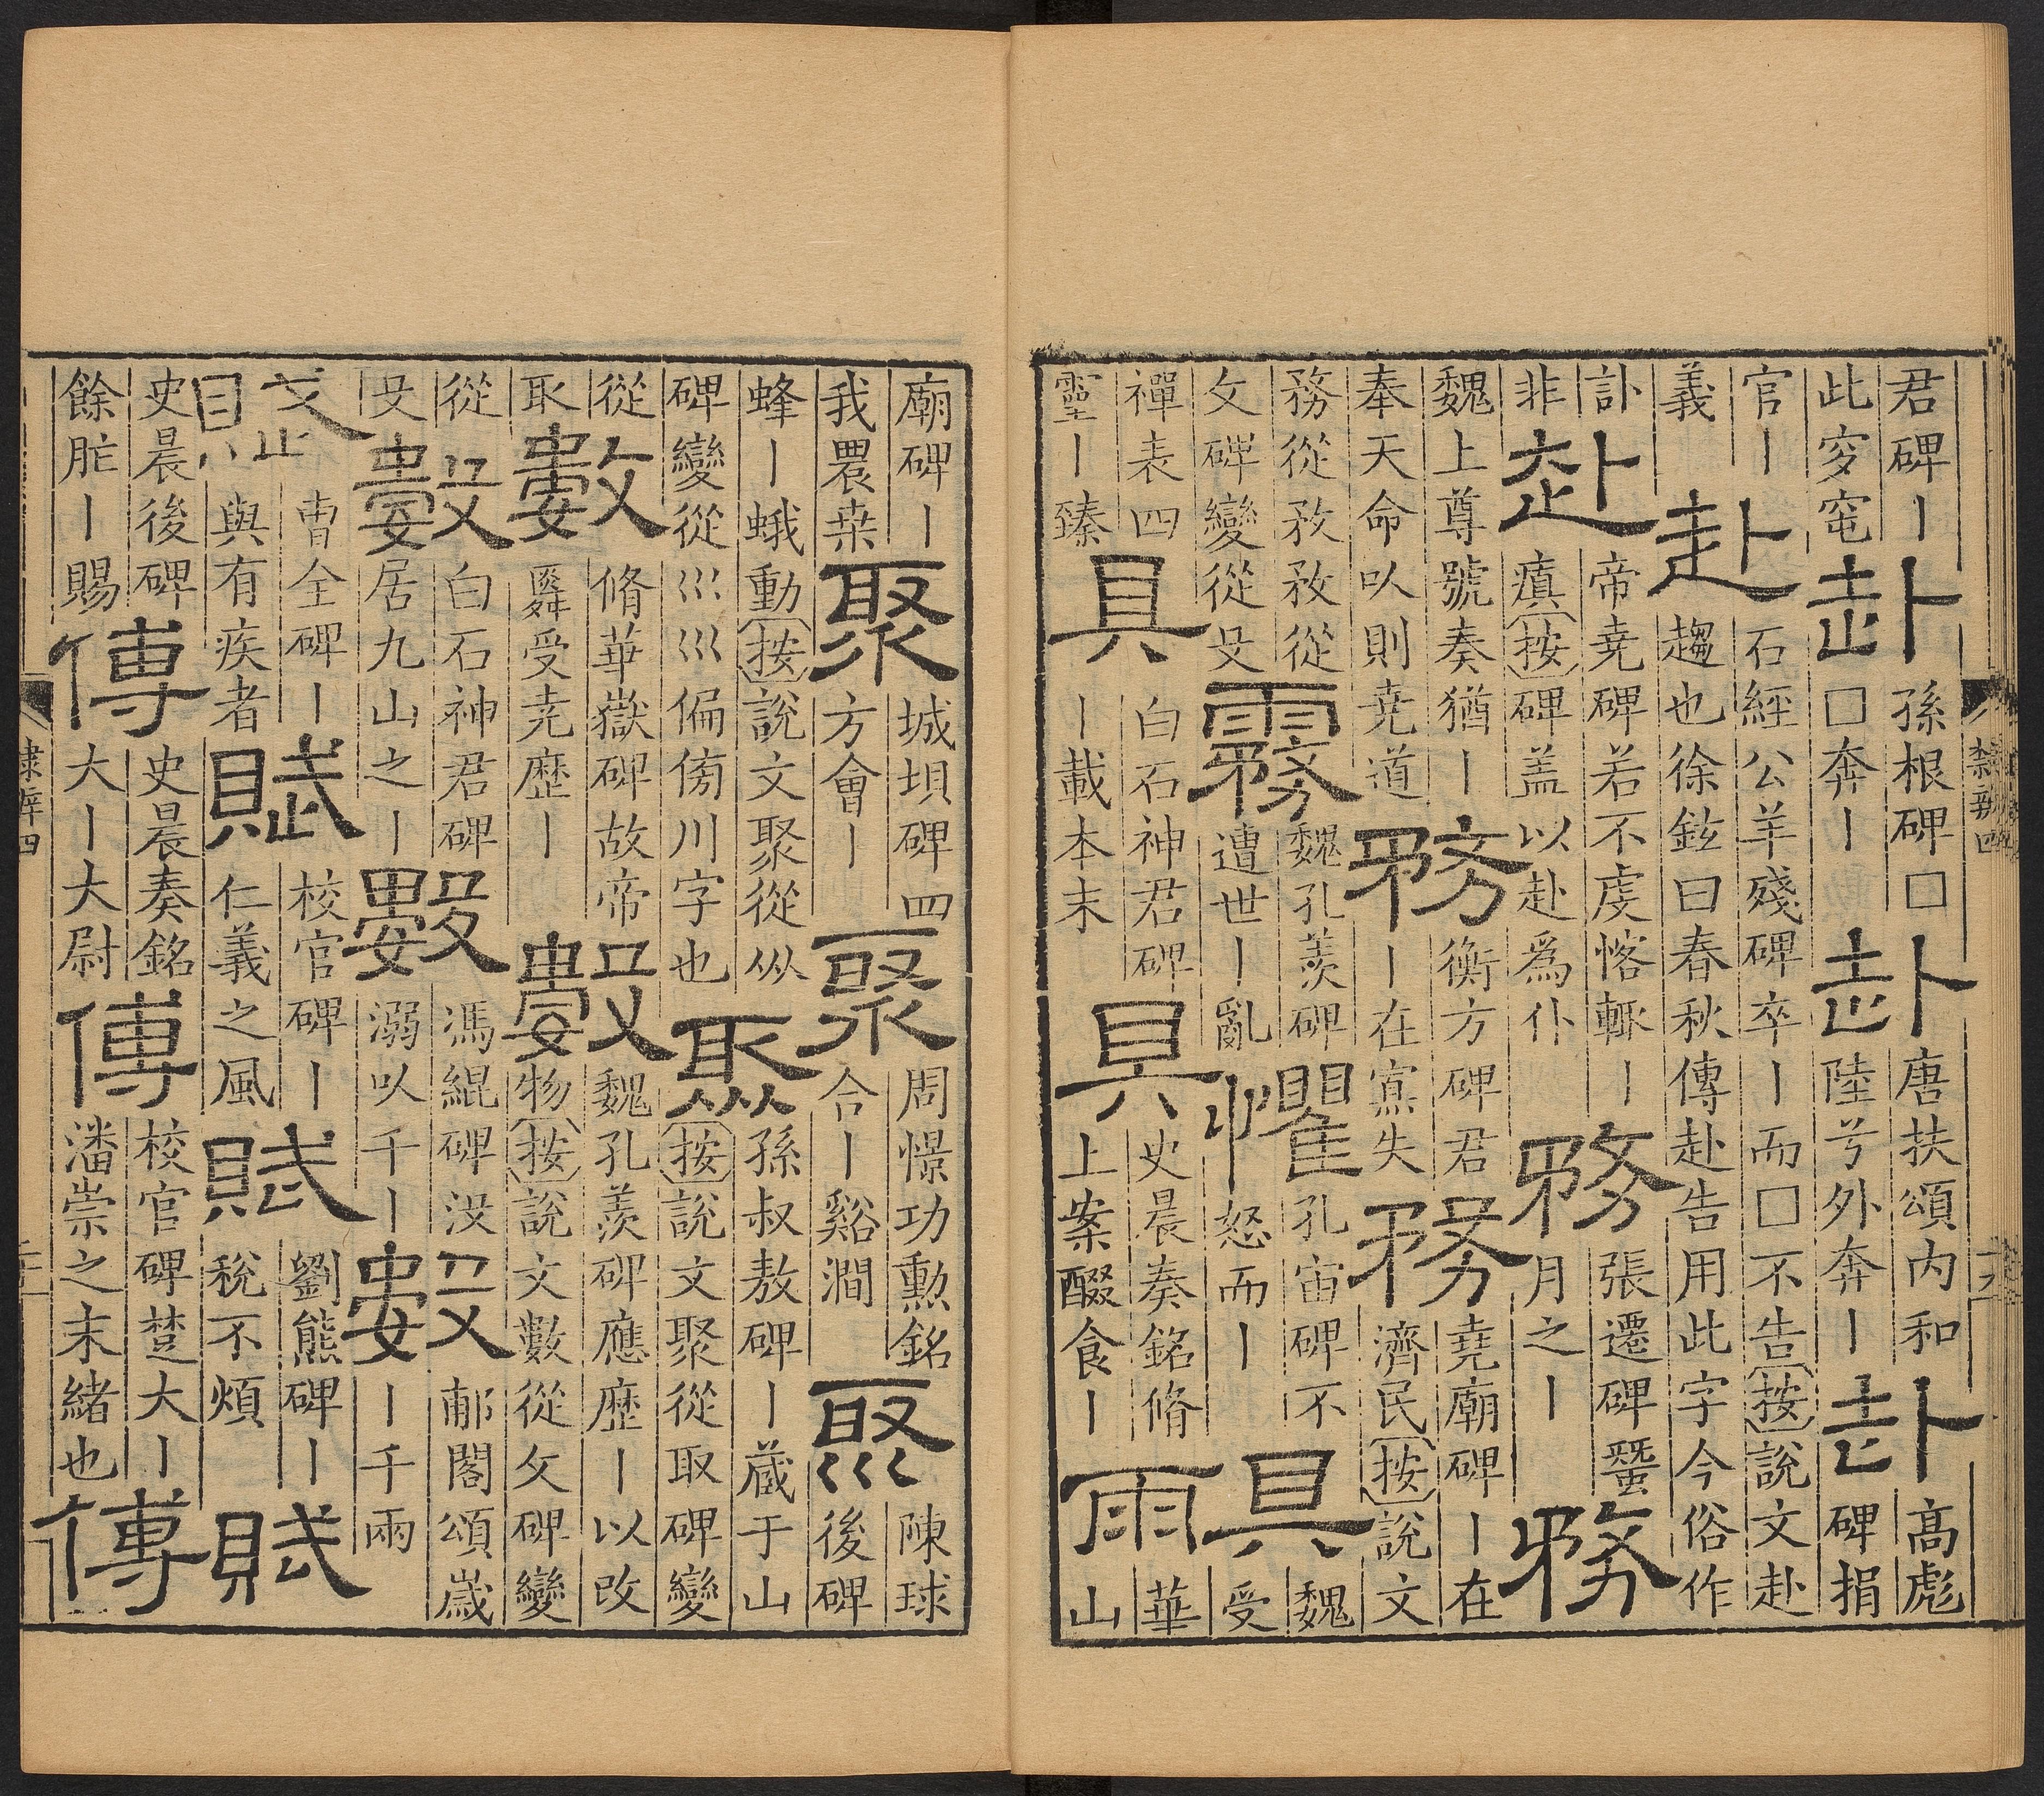 君碑丨此穸窀赴孫根碑□□奔丨赴唐扶頌内和陸兮外奔丨赴高彪碑捐
官丨義赴石經公羊殘碑卒丨而□不告按說文赴趨也徐鉉曰春秋傳赴告用此字今俗作
訃非赴帝堯碑若不虔愘輒丨瘨按碑盖以赴爲仆務張遷碑蠶月之丨務
魏上尊號奏猶丨奉天命以則堯道務衡方碑君丨在寡失務堯廟碑丨在濟民按說文
務從敄敄從攵碑變從殳霧魏孔羨碑遭世丨亂懼孔宙碑不怒而丨具魏受
禪表四靈丨臻具白石神君碑丨載本末具史晨奏銘脩上案醊食丨雨華山
隸辨四
廟碑丨我農桒聚城垻碑四方會丨聚周憬功勲銘合丨谿澗聚陳球後碑
蜂丨蛾動按說文聚從㐺碑變從巛巛偏傍川字也聚孫叔敖碑丨藏于山按說文聚從取碑變
從耴數脩華嶽碑故帝舜受尭歷丨數魏孔羨碑應歷丨以改物按說文數從攵碑變
從殳數白石神君碑居九山之丨數馮緄碑没溺以千丨數郙閣頌歲丨千兩
賦曹全碑丨與有疾者賦校官碑丨仁義之風賦劉熊碑丨稅不煩賦
史晨後碑餘胙丨賜傅史晨奏銘大丨大尉傅校官碑楚大丨潘崇之末緒也傅
隸辨四